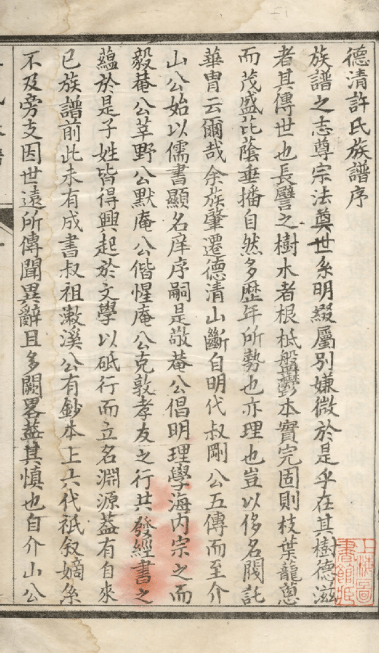 德清許氏族譜序
族譜之志尊宗法奠世系明綴屬別嫌微於是乎在其樹德滋
者其傳世也長譬之樹木者根柢盤鬱本實完固則枝葉蘢蔥
而茂盛芘蔭垂播自然多歷年所勢也亦理也豈以侈名閥託
華冑云爾哉余族肇遷德清山斷自明代叔剛公五傳而至介
山公始以儒書顯名庠序嗣是敬菴公倡明理學海内宗之而
毅菴公莘野公默庵公偕惺庵公克敦孝友之行共發經書之
蘊於是子姓皆得興起於文學以砥行而立名淵源葢有自來
已族譜前此未有成書叔祖漱溪公有鈔本上六代祇叙嫡系
不及旁支因世遠所傳聞異辭且多闕畧葢其慎也自介山公
上海圖
書館藏